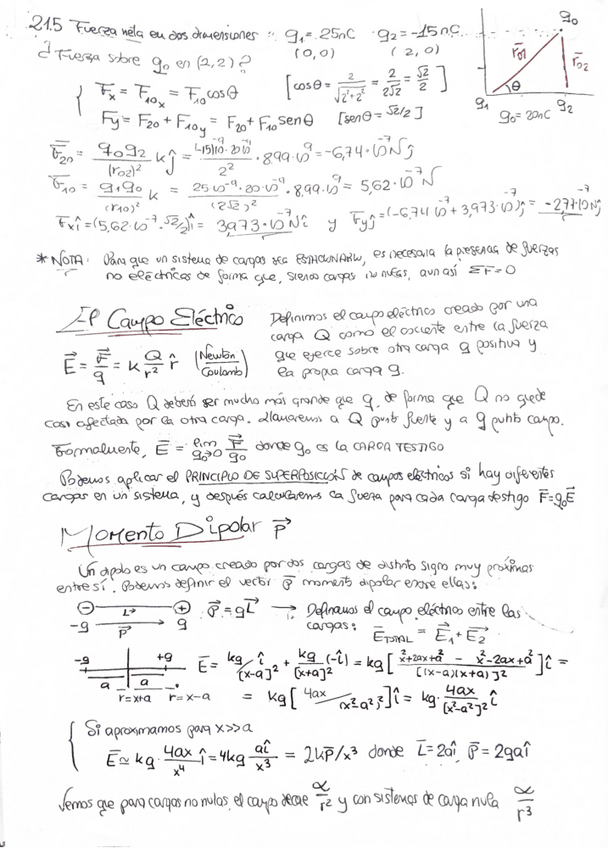 21.5 Fuerza neta en dos dimensiones: q₁ = 25nC q₂ = -15nC
(0,0) (2,0)
¿Fuerza sobre q₀ en (2,2)?
Fx = F10x = F10 cosθ [cosθ = 2/√(2²+2²) = 2/2√2 = √2/2]
Fy = F20 + F10y = F20 + F10 senθ [senθ = √2/2]
q₀
r01
r02
θ
q₁ q₂
q₀ = 20nC
F20 = q₀q₂/(r02)² k ĵ = (-15)10⁻⁹·20·10⁻⁹/2² · 8,99·10⁹ = -6,74·10⁻⁷ N ĵ
F10 = q₁q₀/(r10)² k = 25·10⁻⁹·20·10⁻⁹/(2√2)² · 8,99·10⁹ = 5,62·10⁻⁷ N
Fx î = (5,62·10⁻⁷·√2/2) î = 3,973·10⁻⁷ N î y Fy ĵ = (-6,74·10⁻⁷ + 3,973·10⁻⁷) ĵ = -2,77·10⁻⁷ N ĵ
* NOTA: Para que un sistema de cargas sea ESTACIONARIO, es necesaria la presencia de fuerzas
no eléctricas de forma que, siendo cargas no nulas, aun así ΣF = 0
El Campo Eléctrico
Definimos el campo eléctrico creado por una
carga Q como el cociente entre la fuerza
que ejerce sobre otra carga q positiva y
la propia carga q.
E = F/q = k Q/r² r̂ (Newton/Coulomb)
En este caso Q deberá ser mucho más grande que q, de forma que Q no quede
casi afectada por la otra carga. Llamaremos a Q punto fuente y a q punto campo.
Formalmente, E = lim q₀→0 F/q₀ donde q₀ es la CARGA TESTIGO
Podemos aplicar el PRINCIPIO DE SUPERPOSICIÓN de campos eléctricos si hay diferentes
cargas en un sistema, y después calcularemos la fuerza para cada carga testigo F = q₀E
Momento Dipolar P
Un dipolo es un campo creado por dos cargas de distinto signo muy próximas
entre sí. Podemos definir el vector P momento dipolar entre ellas:
⊖ L→ ⊕ P = qL → Definamos el campo eléctrico entre las
-q P q cargas: E TOTAL = E₁ + E₂
-q +q
a a
r=x+a r=x-a
E = kq/[x-a]² î + kq/[x+a]² (-î) = kq [x²+2ax+a² - x²-2ax+a² / [(x-a)(x+a)]²] î =
= kq [4ax/(x²-a²)²] î = kq · 4ax/[x²-a²]² î
Si aproximamos para x>>a
E ≃ kq · 4ax/x⁴ î = 4kq aî/x³ = 2kP/x³ donde L = 2aî, P = 2qaî
Vemos que para cargas no nulas, el campo decae α/r² y con sistemas de carga nula α/r³